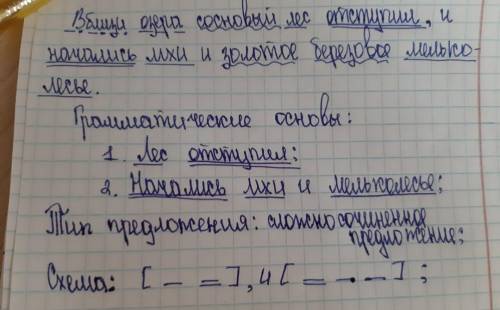 Вблизи озера сосновый лес отступил, и
начались мхи и золотое березовое мелько-
лесье.
Грамматические основы:
1. Лес отступил;
2. Начались мхи и мельколесье;
Тип предложения: сложносочиненное
предложение;
Схема: [ – = ], и [ = –.– ] ;